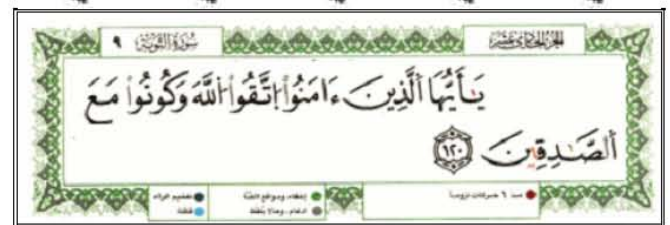 الجزء الحادي عشر سُورَةُ التَّوْبَةِ ٩
يَـٰٓأَيُّهَا ٱلَّذِينَ ءَامَنُوا۟ ٱتَّقُوا۟ ٱللَّهَ وَكُونُوا۟ مَعَ
ٱلصَّـٰدِقِينَ ١٢٠
مد ٦ حركات لزوماً إخفاء، ومواقع الغنّة تفخيم الراء
ادغام، وما لا يُلفظ قلقلة